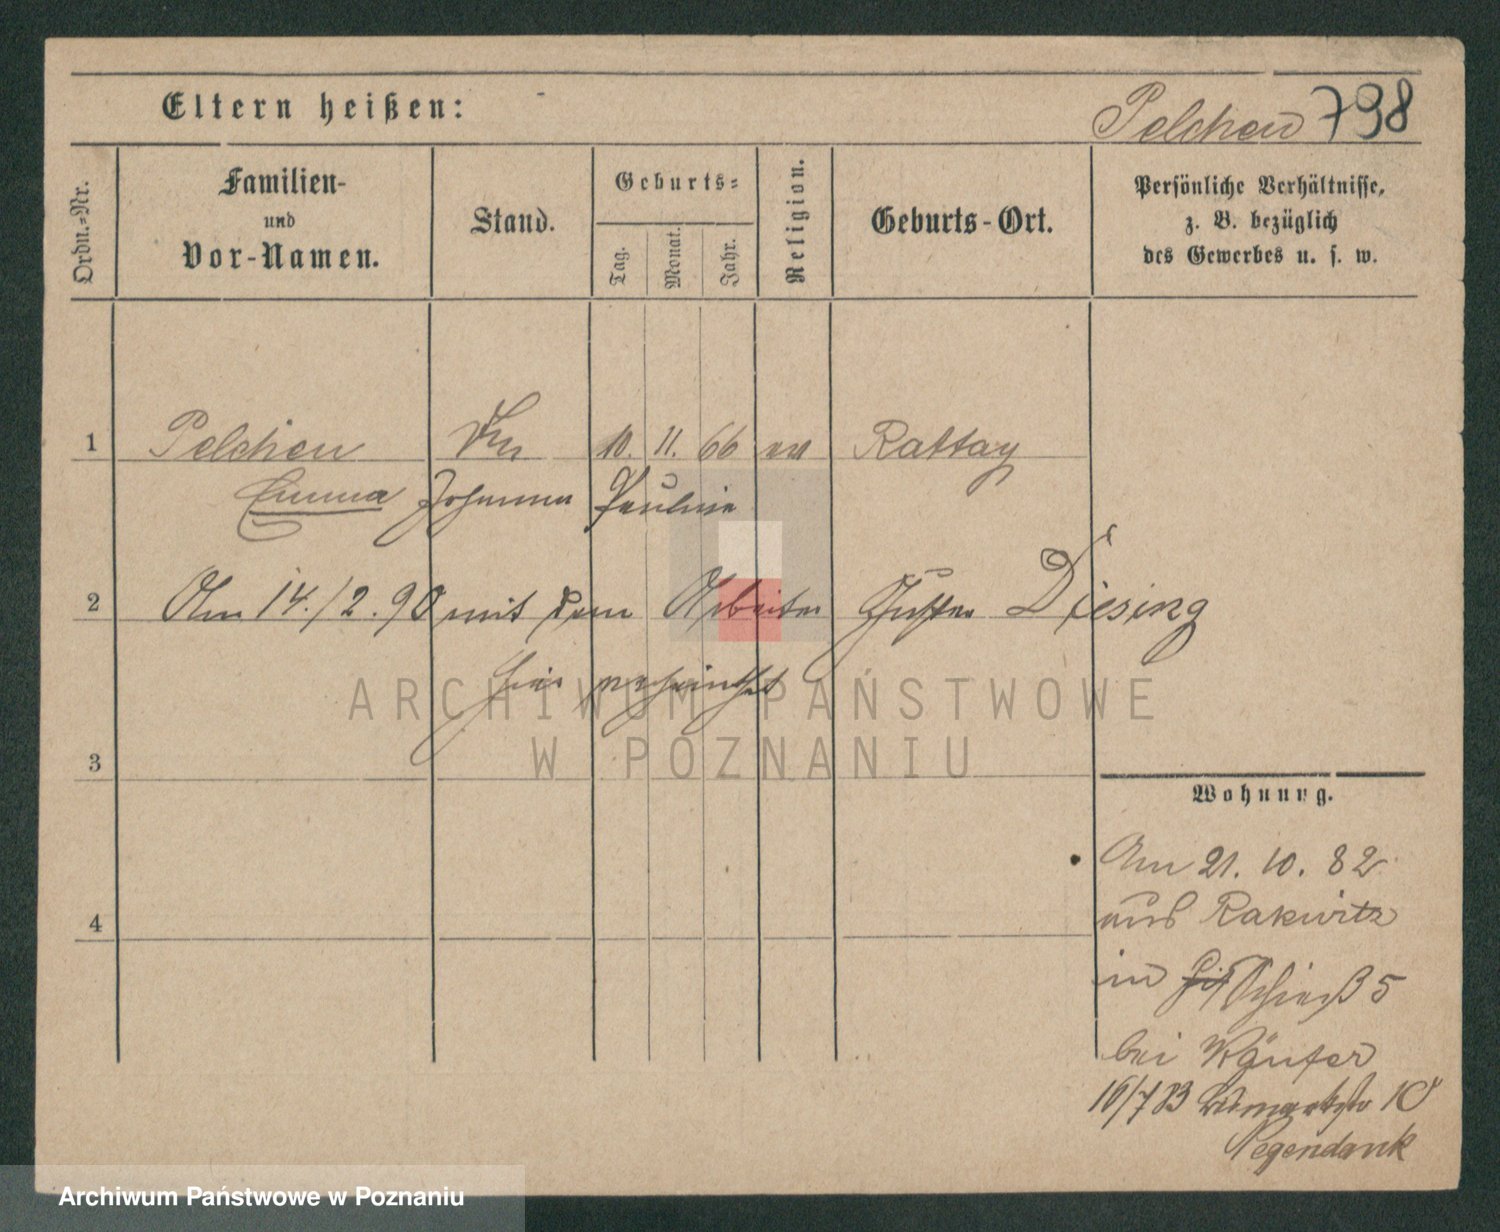 Eltern heißen:
Pelchen 798
Ordn.=Nr.
Familien-
und
Vor-Namen.
Stand.
Geburts=
Tag.
Monat.
Jahr.
Religion.
Geburts-Ort.
Persönliche Verhältnisse,
z. B. bezüglich
des Gewerbes u. s. w.
1 Pelchen 10. 11. 66 ev Rattay
Emma Johanna Pauline
2 Am 14./2.90 mit dem Arbeiter Gustav Diesing
hier verheirathet
ARCHIWUM PAŃSTWOWE
W POZNANIU
3
Wohnung.
Am 21. 10. 82
aus Rakwitz
4
in Schieß 5
bei Käufer
16/7 83 Bismarckstr 10
Pegendank
Archiwum Państwowe w Poznaniu